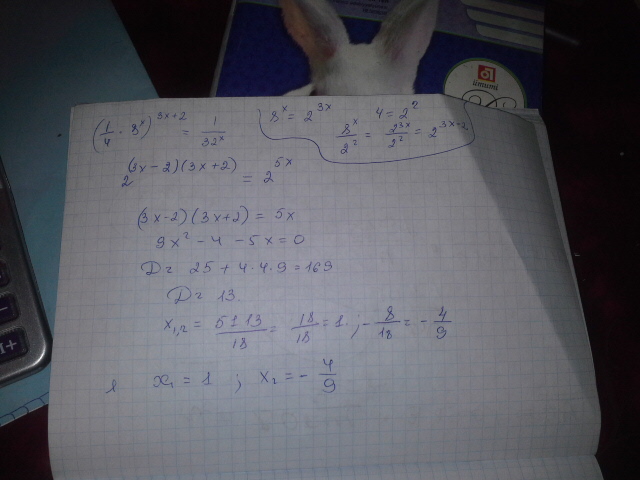 itumi
(1/4 · 8^x)^(3x+2) = 1/32^x
8^x = 2^(3x) 4 = 2^2
8^x/2^2 = 2^(3x)/2^2 = 2^(3x-2)
2^((3x-2)(3x+2)) = 2^(5x)
(3x-2)(3x+2) = 5x
9x² - 4 - 5x = 0
D = 25 + 4·4·9 = 169
D = 13.
x₁,₂ = 5±13/18 = 18/18 = 1 ; -8/18 = -4/9
x₁ = 1 ; x₂ = -4/9